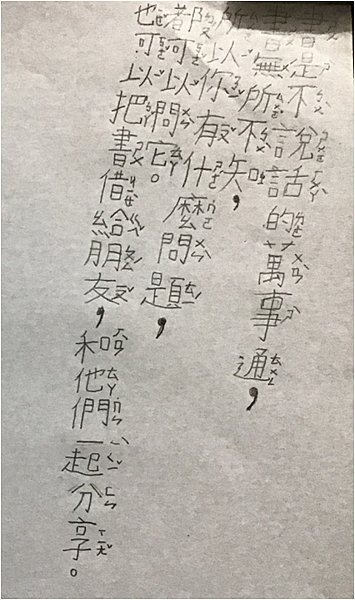 書是不說話的萬事通，
書無所不知，
所以你有什麼問題，
都可以問它。
也可以把書借給朋友，和他們一起分享。